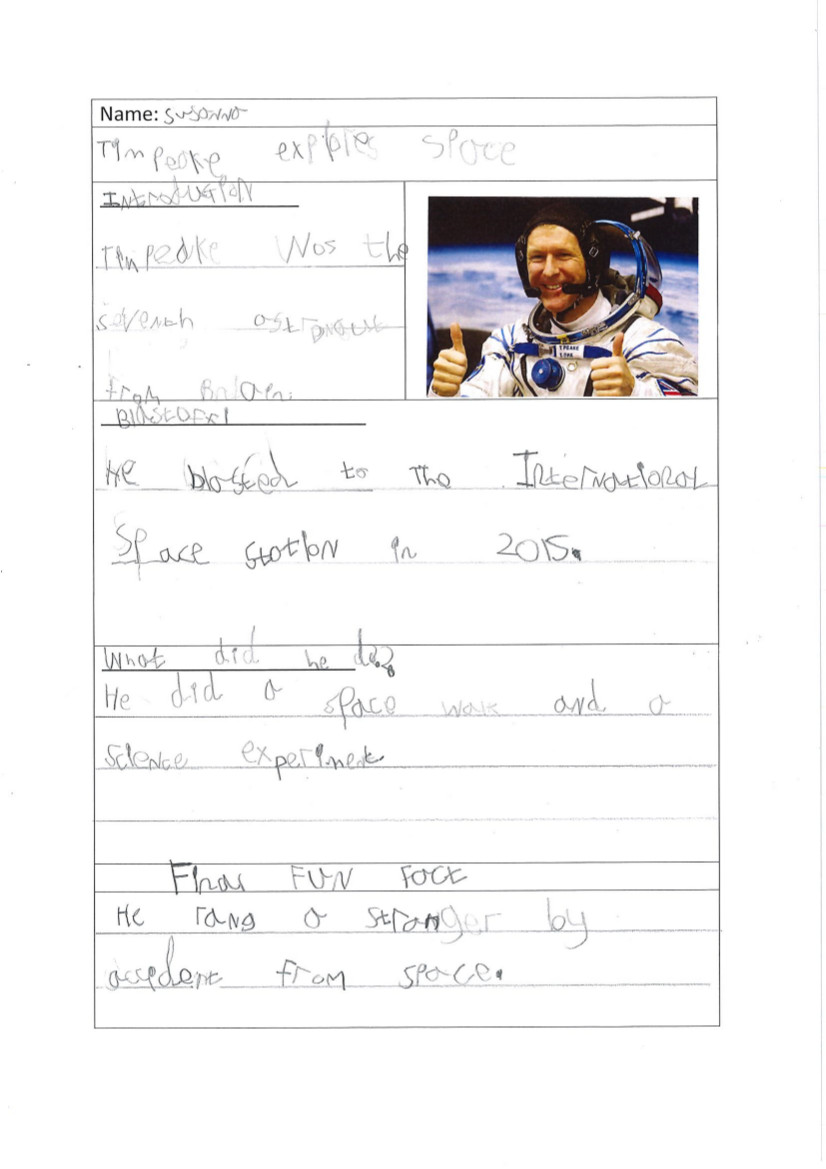 Name: Susanna
Tim peake explores space
INtroductioN
Tim peake Was the
seventh astronaut
from Britain.
Blastoff!
He blasted to The International
Space station in 2015.
What did he do?
He did a space walk and a
science experiment
Final FUN Fact
He rang a stranger by
accedent from space.